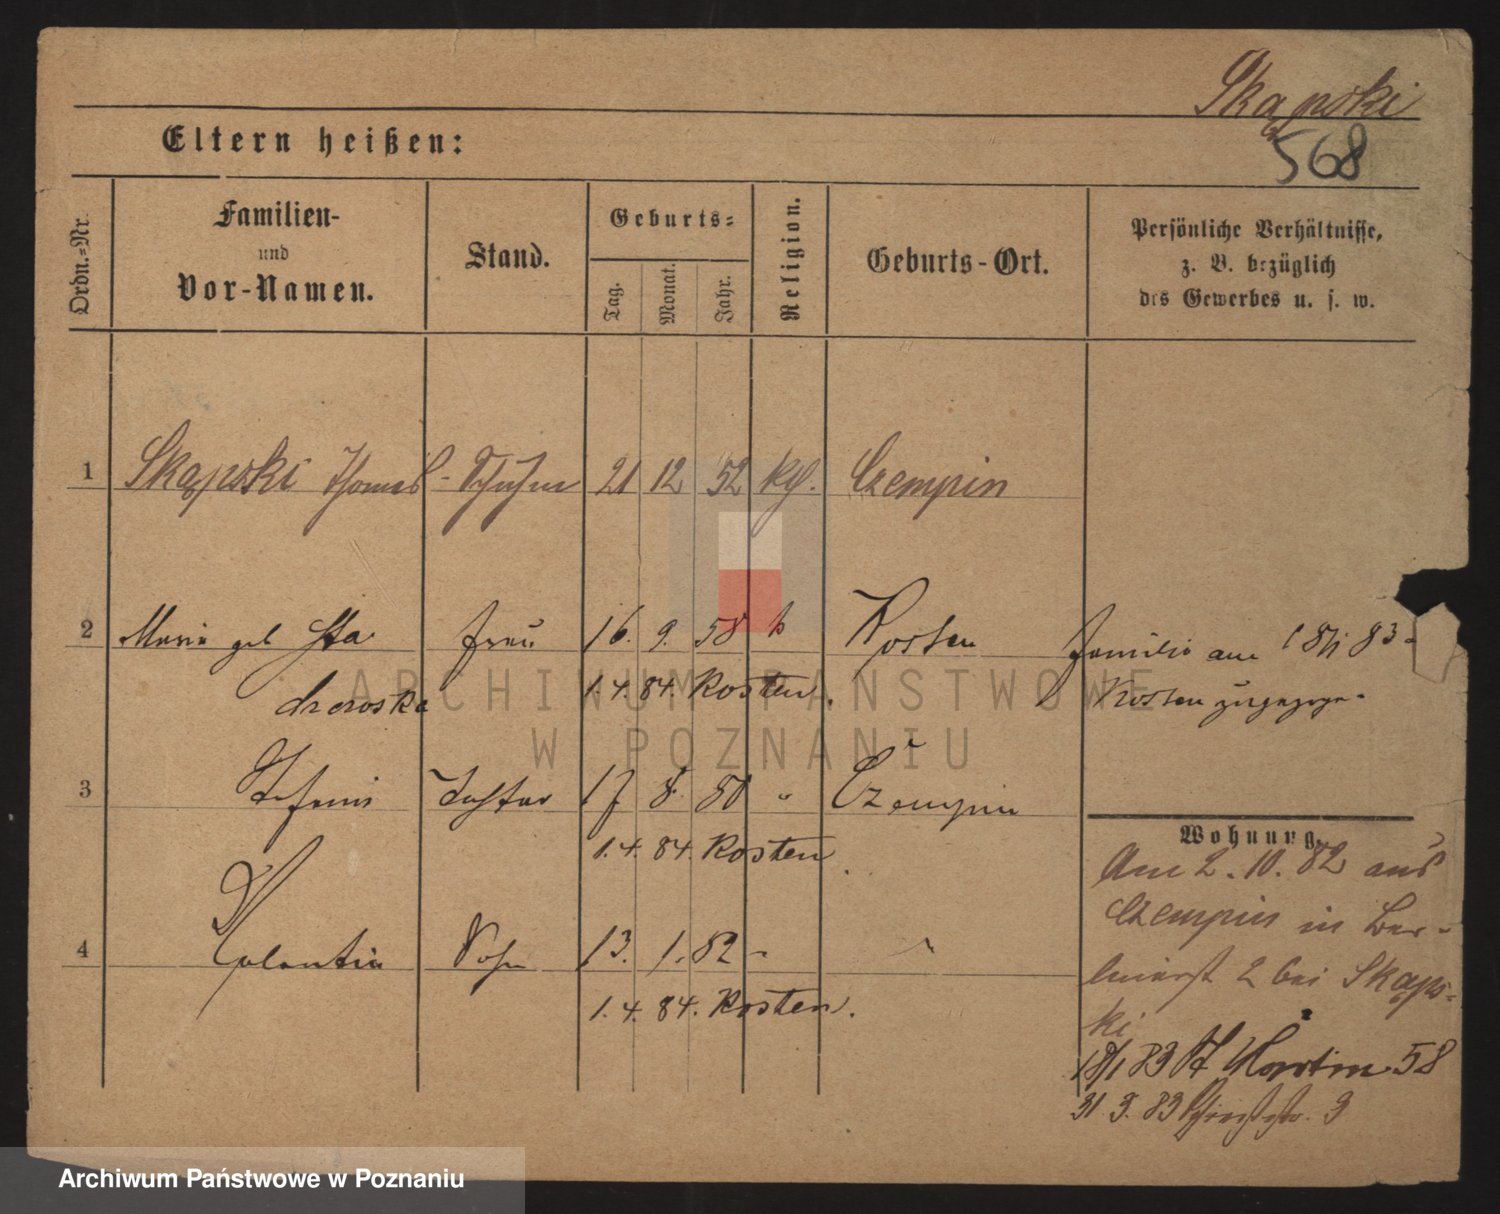 Skąpski
568
Eltern heißen:
Ordn.-Nr.
Familien-
und
Vor-Namen.
Stand.
Geburts-
Tag.
Monat.
Jahr.
Religion.
Geburts-Ort.
Persönliche Verhältnisse,
z. B. bezüglich
des Gewerbes u. s. w.
1 Skąpski Thomas 21 12 52 kth. Czempin
2 Maria geb Sta Frau 16. 9. 58 k Kosten
Familie am 18/1 83
1. 4. 84. Kosten.
Kosten zugezogen
3 Tochter 17 8. 80 " Czempin
1. 4. 84. Kosten.
4 Valentin Sohn 13. 1. 82 "
1. 4. 84. Kosten.
Wohnung.
Am 2. 10. 82 aus
Czempin in
2 bei Skąps-
ki
18/1 83 St Martin 58
31 3. 83 3
ARCHIWUM PAŃSTWOWE
W POZNANIU
Archiwum Państwowe w Poznaniu